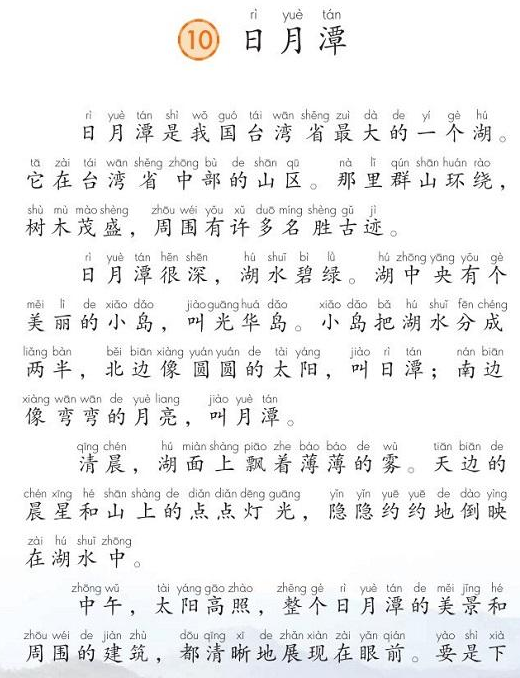 rì yuè tán
10 日月潭
rì yuè tán shì wǒ guó tái wān shěng zuì dà de yí gè hú
日月潭是我国台湾省最大的一个湖。
tā zài tái wān shěng zhōng bù de shān qū nà lǐ qún shān huán rào
它在台湾省中部的山区。那里群山环绕，
shù mù mào shèng zhōu wéi yǒu xǔ duō míng shèng gǔ jì
树木茂盛，周围有许多名胜古迹。
rì yuè tán hěn shēn hú shuǐ bì lǜ hú zhōng yāng yǒu gè
日月潭很深，湖水碧绿。湖中央有个
měi lì de xiǎo dǎo jiào guāng huá dǎo xiǎo dǎo bǎ hú shuǐ fēn chéng
美丽的小岛，叫光华岛。小岛把湖水分成
liǎng bàn běi biān xiàng yuán yuán de tài yáng jiào rì tán nán biān
两半，北边像圆圆的太阳，叫日潭；南边
xiàng wān wān de yuè liang jiào yuè tán
像弯弯的月亮，叫月潭。
qīng chén hú miàn shàng piāo zhe báo báo de wù tiān biān de
清晨，湖面上飘着薄薄的雾。天边的
chén xīng hé shān shàng de diǎn diǎn dēng guāng yǐn yǐn yuē yuē de dào yìng
晨星和山上的点点灯光，隐隐约约地倒映
zài hú shuǐ zhōng
在湖水中。
zhōng wǔ tài yáng gāo zhào zhěng gè rì yuè tán de měi jǐng hé
中午，太阳高照，整个日月潭的美景和
zhōu wéi de jiàn zhù dōu qīng xī de zhǎn xiàn zài yǎn qián yào shì xià
周围的建筑，都清晰地展现在眼前。要是下